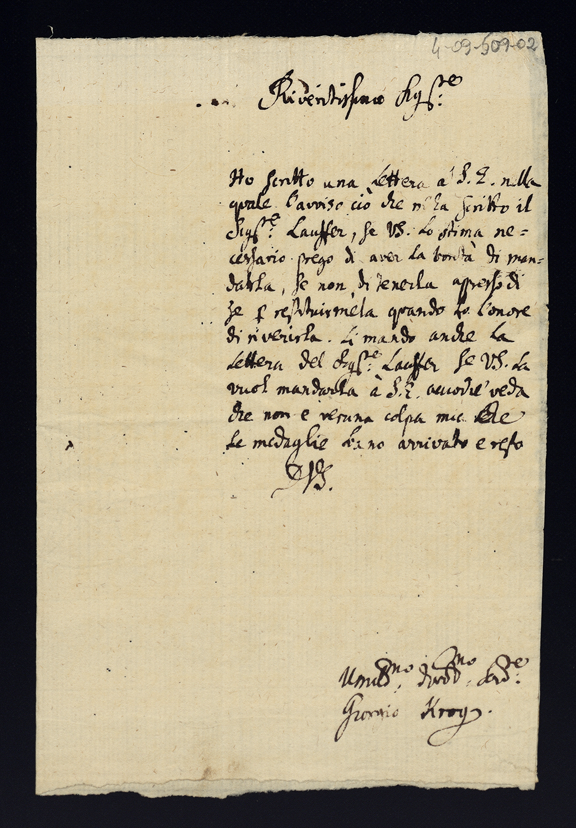 4-09-509-02
Riveritissimo Sig.re
Ho scritto una Lettera a S. E. nella
quale l'avviso ciò che m'ha scritto il
Sig.re Lauffer, se VS. Lo stima ne=
cessario prego di aver la bontà di man=
darla, se non, di tenerla appresso di
se p restituirmela quando ho l'onore
di riverirla. Li mando anche la
Lettera del Sig.re Lauffer se VS. La
vuol mandarla à S. E. accioche veda
che non e veruna colpa mia che
Le medaglie hano arrivato e resto
DVS.
Umill.mo Div.mo Ser.re
Giorgio Krog.